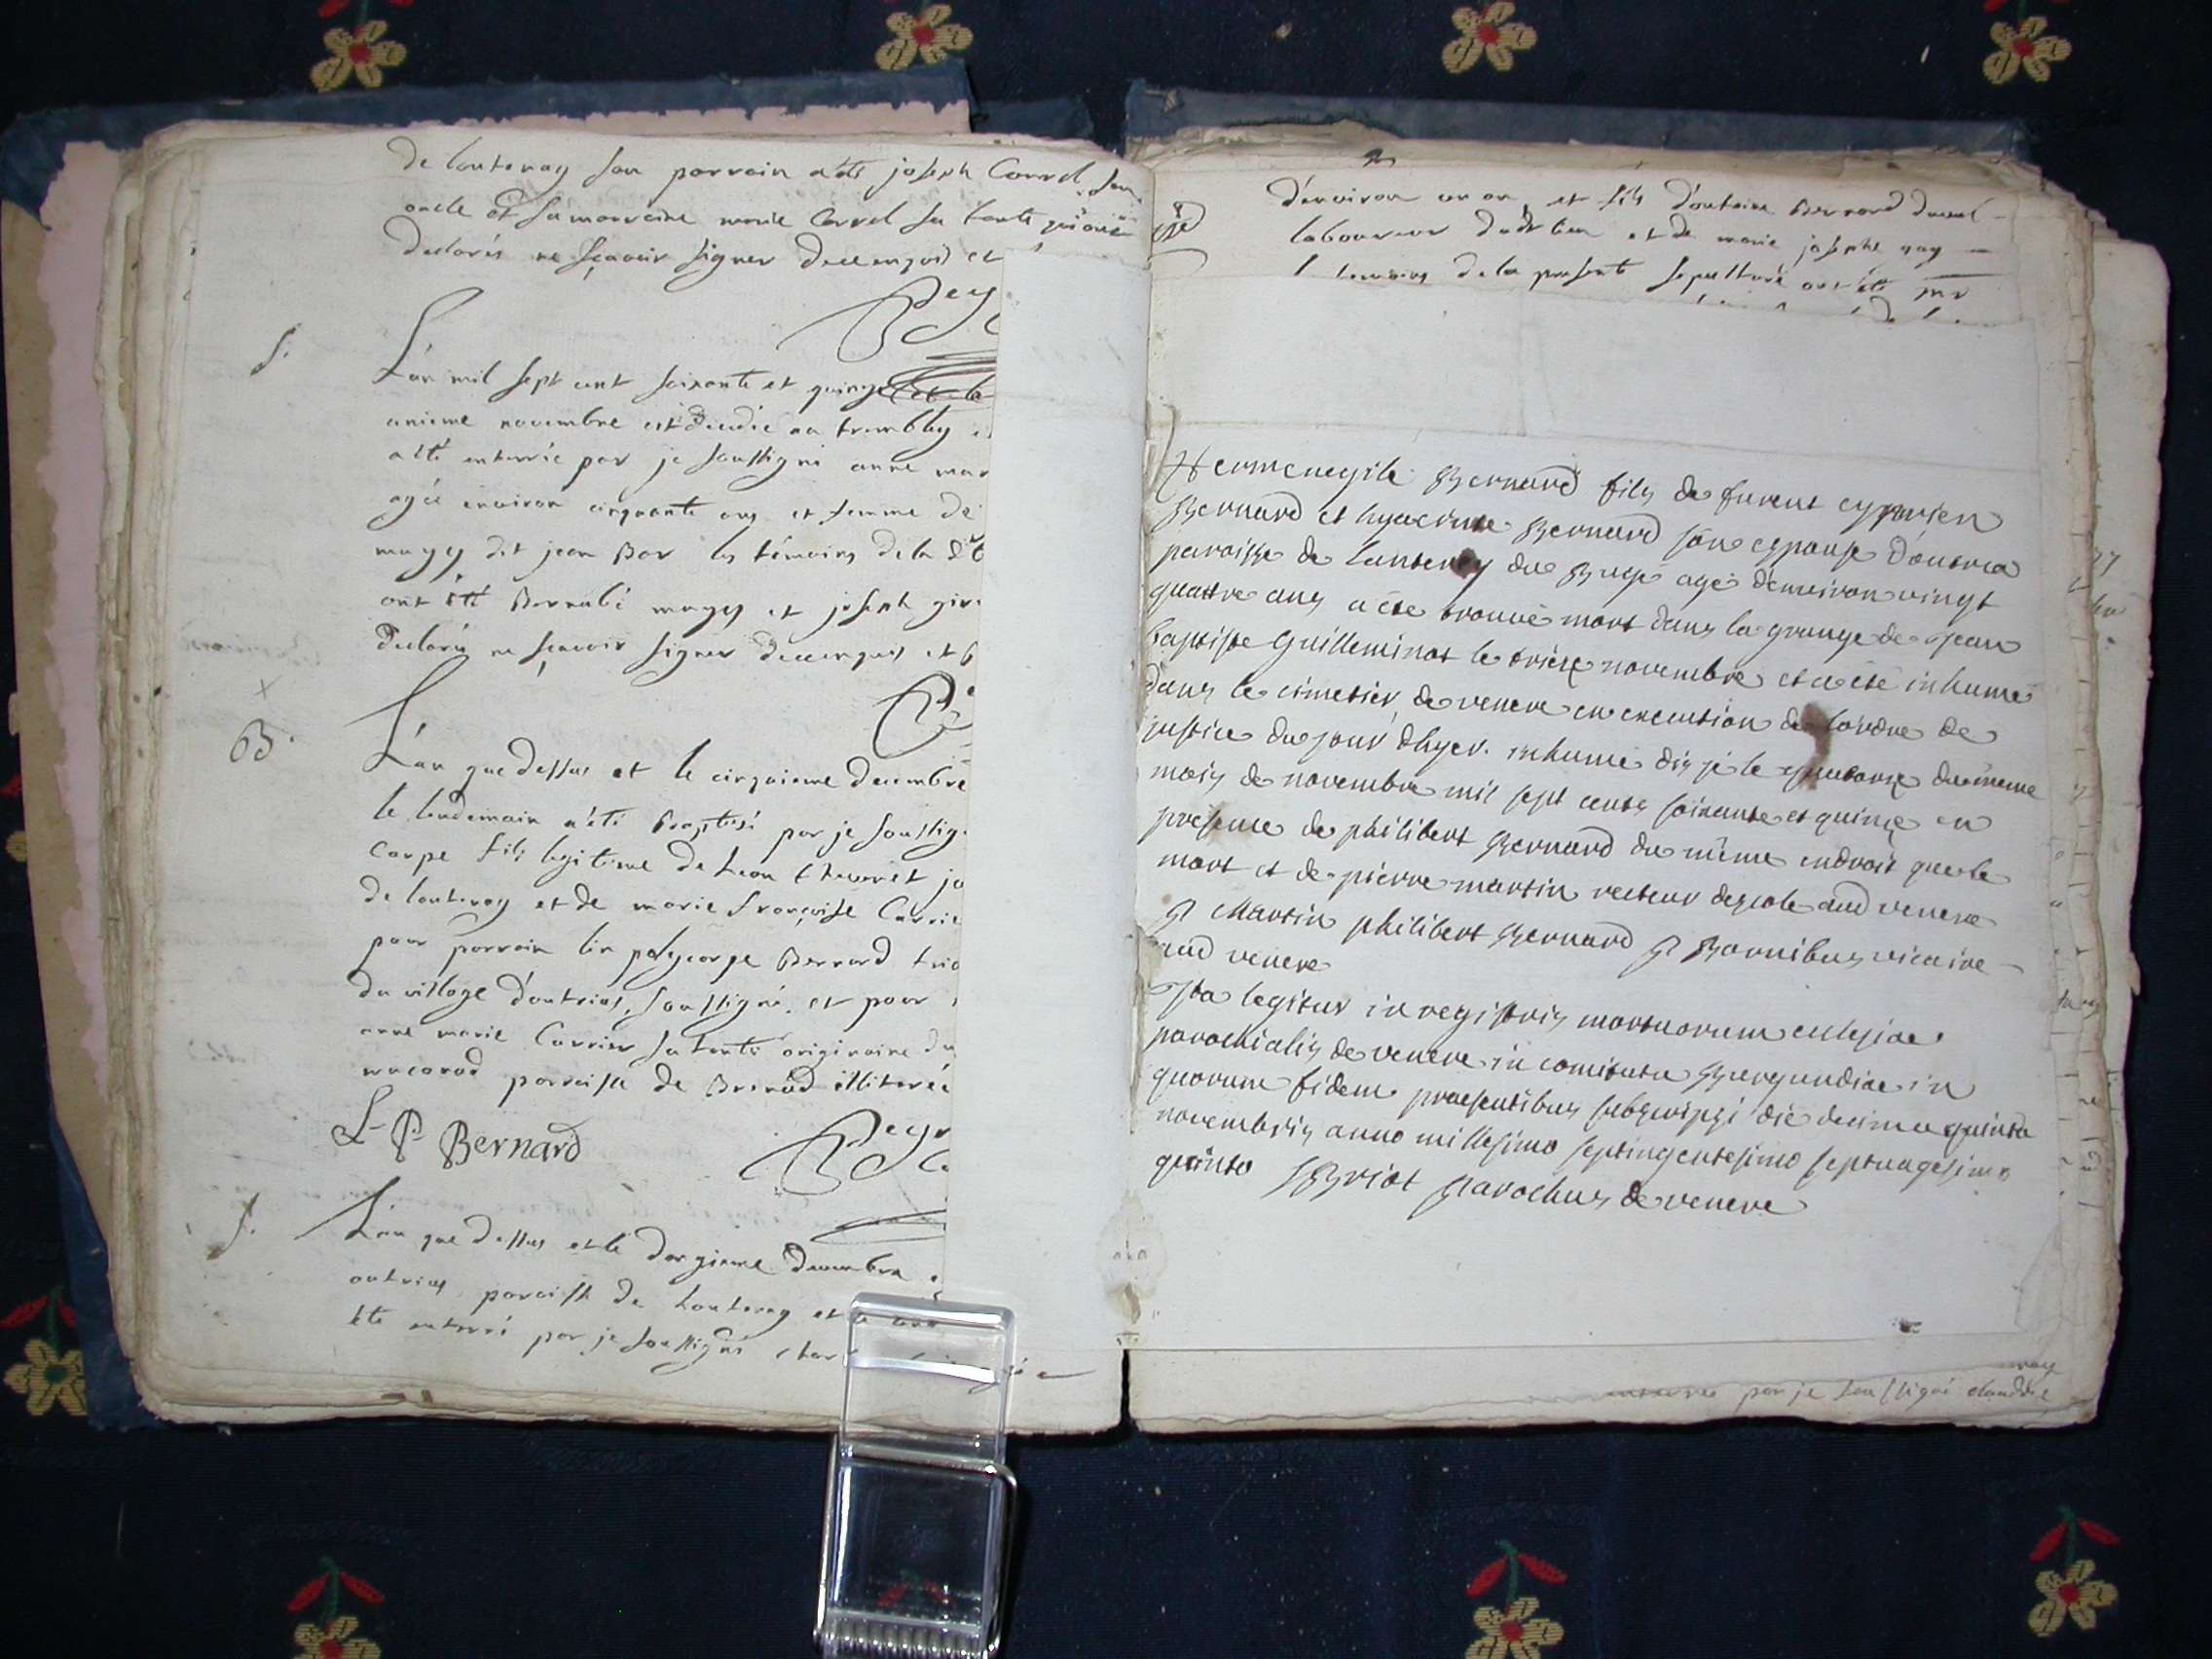 de lantenay son parrain a été joseph Carrel son
oncle et sa marraine marie Carrel sa tante qui ont
declarés ne sçavoir signer de ce enquis et
Rey
S.
L'an mil sept cent soixante et quinze et le
onzieme novembre est decedée au tremblay
a été enterrée par je soussigné anne mar
agée environ cinquante ans et femme de
mugy dit jean Bar les témoins de la
ont été Barnabé mugy et joseph gir
declaré ne sçavoir signer de ce enquis et
B.
L'an que dessus et le cinquieme decembre
le lendemain a été Baptisé par je soussig
Carpe fils legitime de
de lantenay et de marie françoise Carrie
pour parrain lin polycarpe Bernard
du village d'outrias, soussigné, et pour
anne marie Carrier sa tante originaire du
macorod parroisse de Brenod illiterée
L P Bernard
Rey
S.
L'an que dessus et le decembre
outrias parroisse de lantenay et
été enterré par je soussigné
d'environ un an, et fils d'antoine Bernard
laboureur dudt lieu et de marie josephe gay
temoins de la presente sepulture ont été
Hermenegile Bernard fils de furent cyprien
Bernard et hyacinte Bernard son espouse d'outria
paroisse de lantenay du Bugé agé d'environ vingt
quattre ans a été trouvé mort dans la grange de Jean
baptiste Guilleminot le treize novembre et a été inhumé
dans le cimetier de venere en execution de l'ordre de
justice du jour d'hyer. inhumé dis je le quatorze du même
mois de novembre mil sept cents soixante et quinze en
presence de philibert Bernard du même endroit que le
mort et de pierre martin recteur d'escole aud venere
P Martin philibert Bernard P Barnibus vicaire
aud venere
Ita legitur in registris mortuorum ecclesiae
parochialis de venere in comitatu Burgundiae in
quorum fidem praesentibus subscripsi die decima quinta
novembris anno millesimo septingentesimo septuagesimo
quinto Briot Parochus de venere
par je soussigné claudde